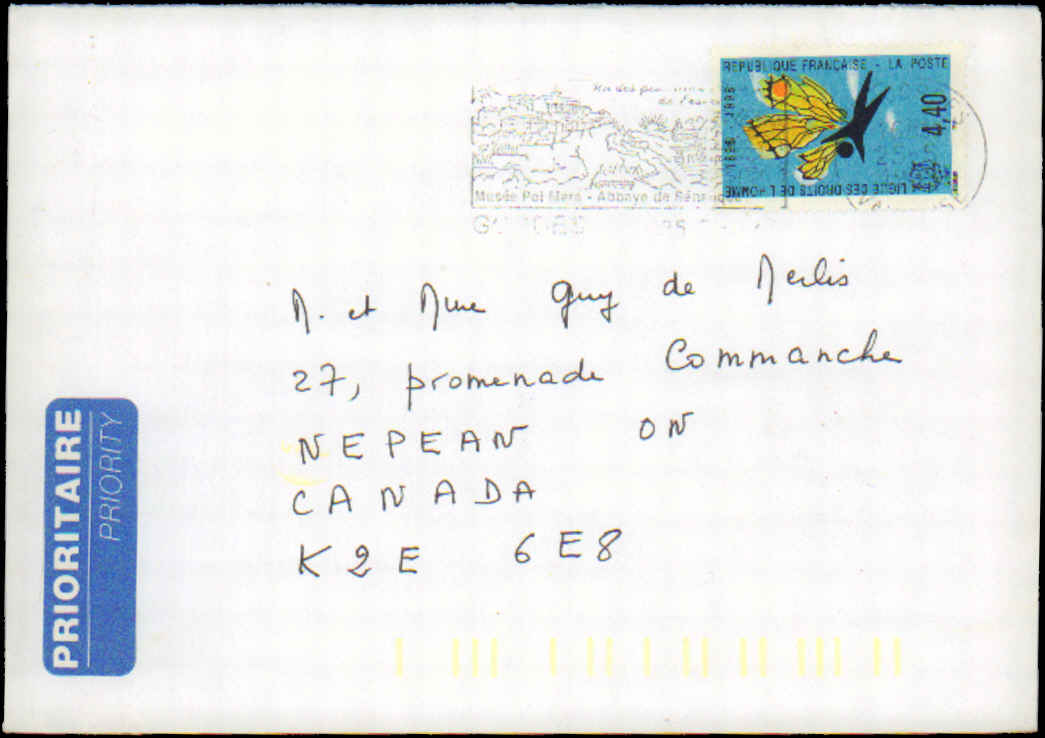 REPUBLIQUE FRANCAISE - LA POSTE
1898 1998
4,40
LIGUE DES DROITS DE L'HOMME
Musée Pol Mara - Abbaye de Sénanque
M et Mme Guy de Merlis
27, promenade Commanche
NEPEAN ON
CANADA
K2E 6E8
PRIORITAIRE
PRIORITY